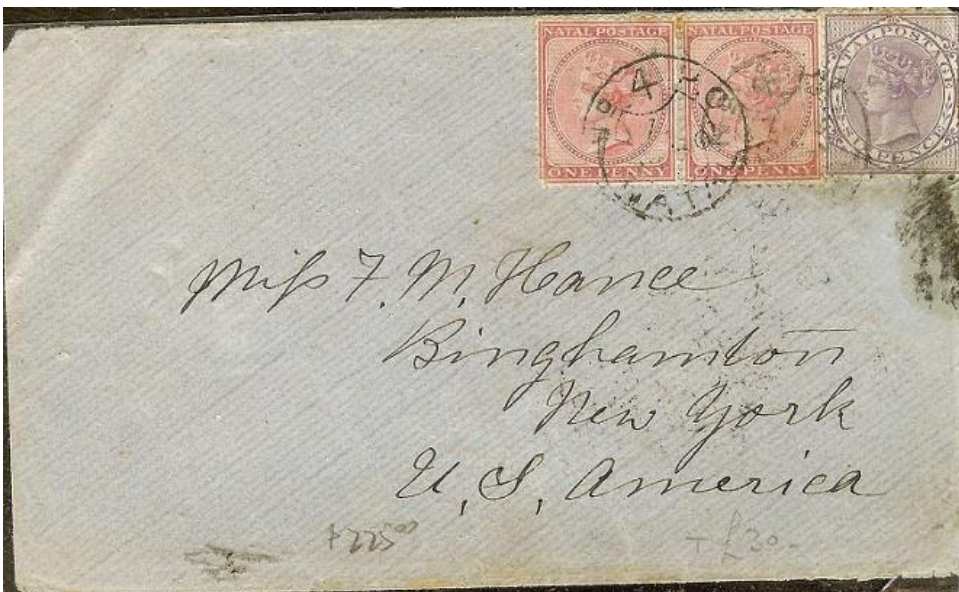 NATAL POSTAGE
ONE PENNY
NATAL POSTAGE
ONE PENNY
NATAL POSTAGE
SIXPENCE
4
Miss F. M. Hance
Binghamton
New York
U. S. America
£30-